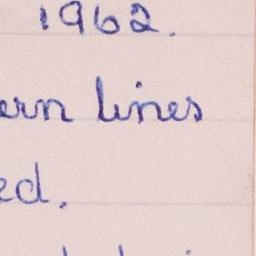 1962.
ern lines
ed.